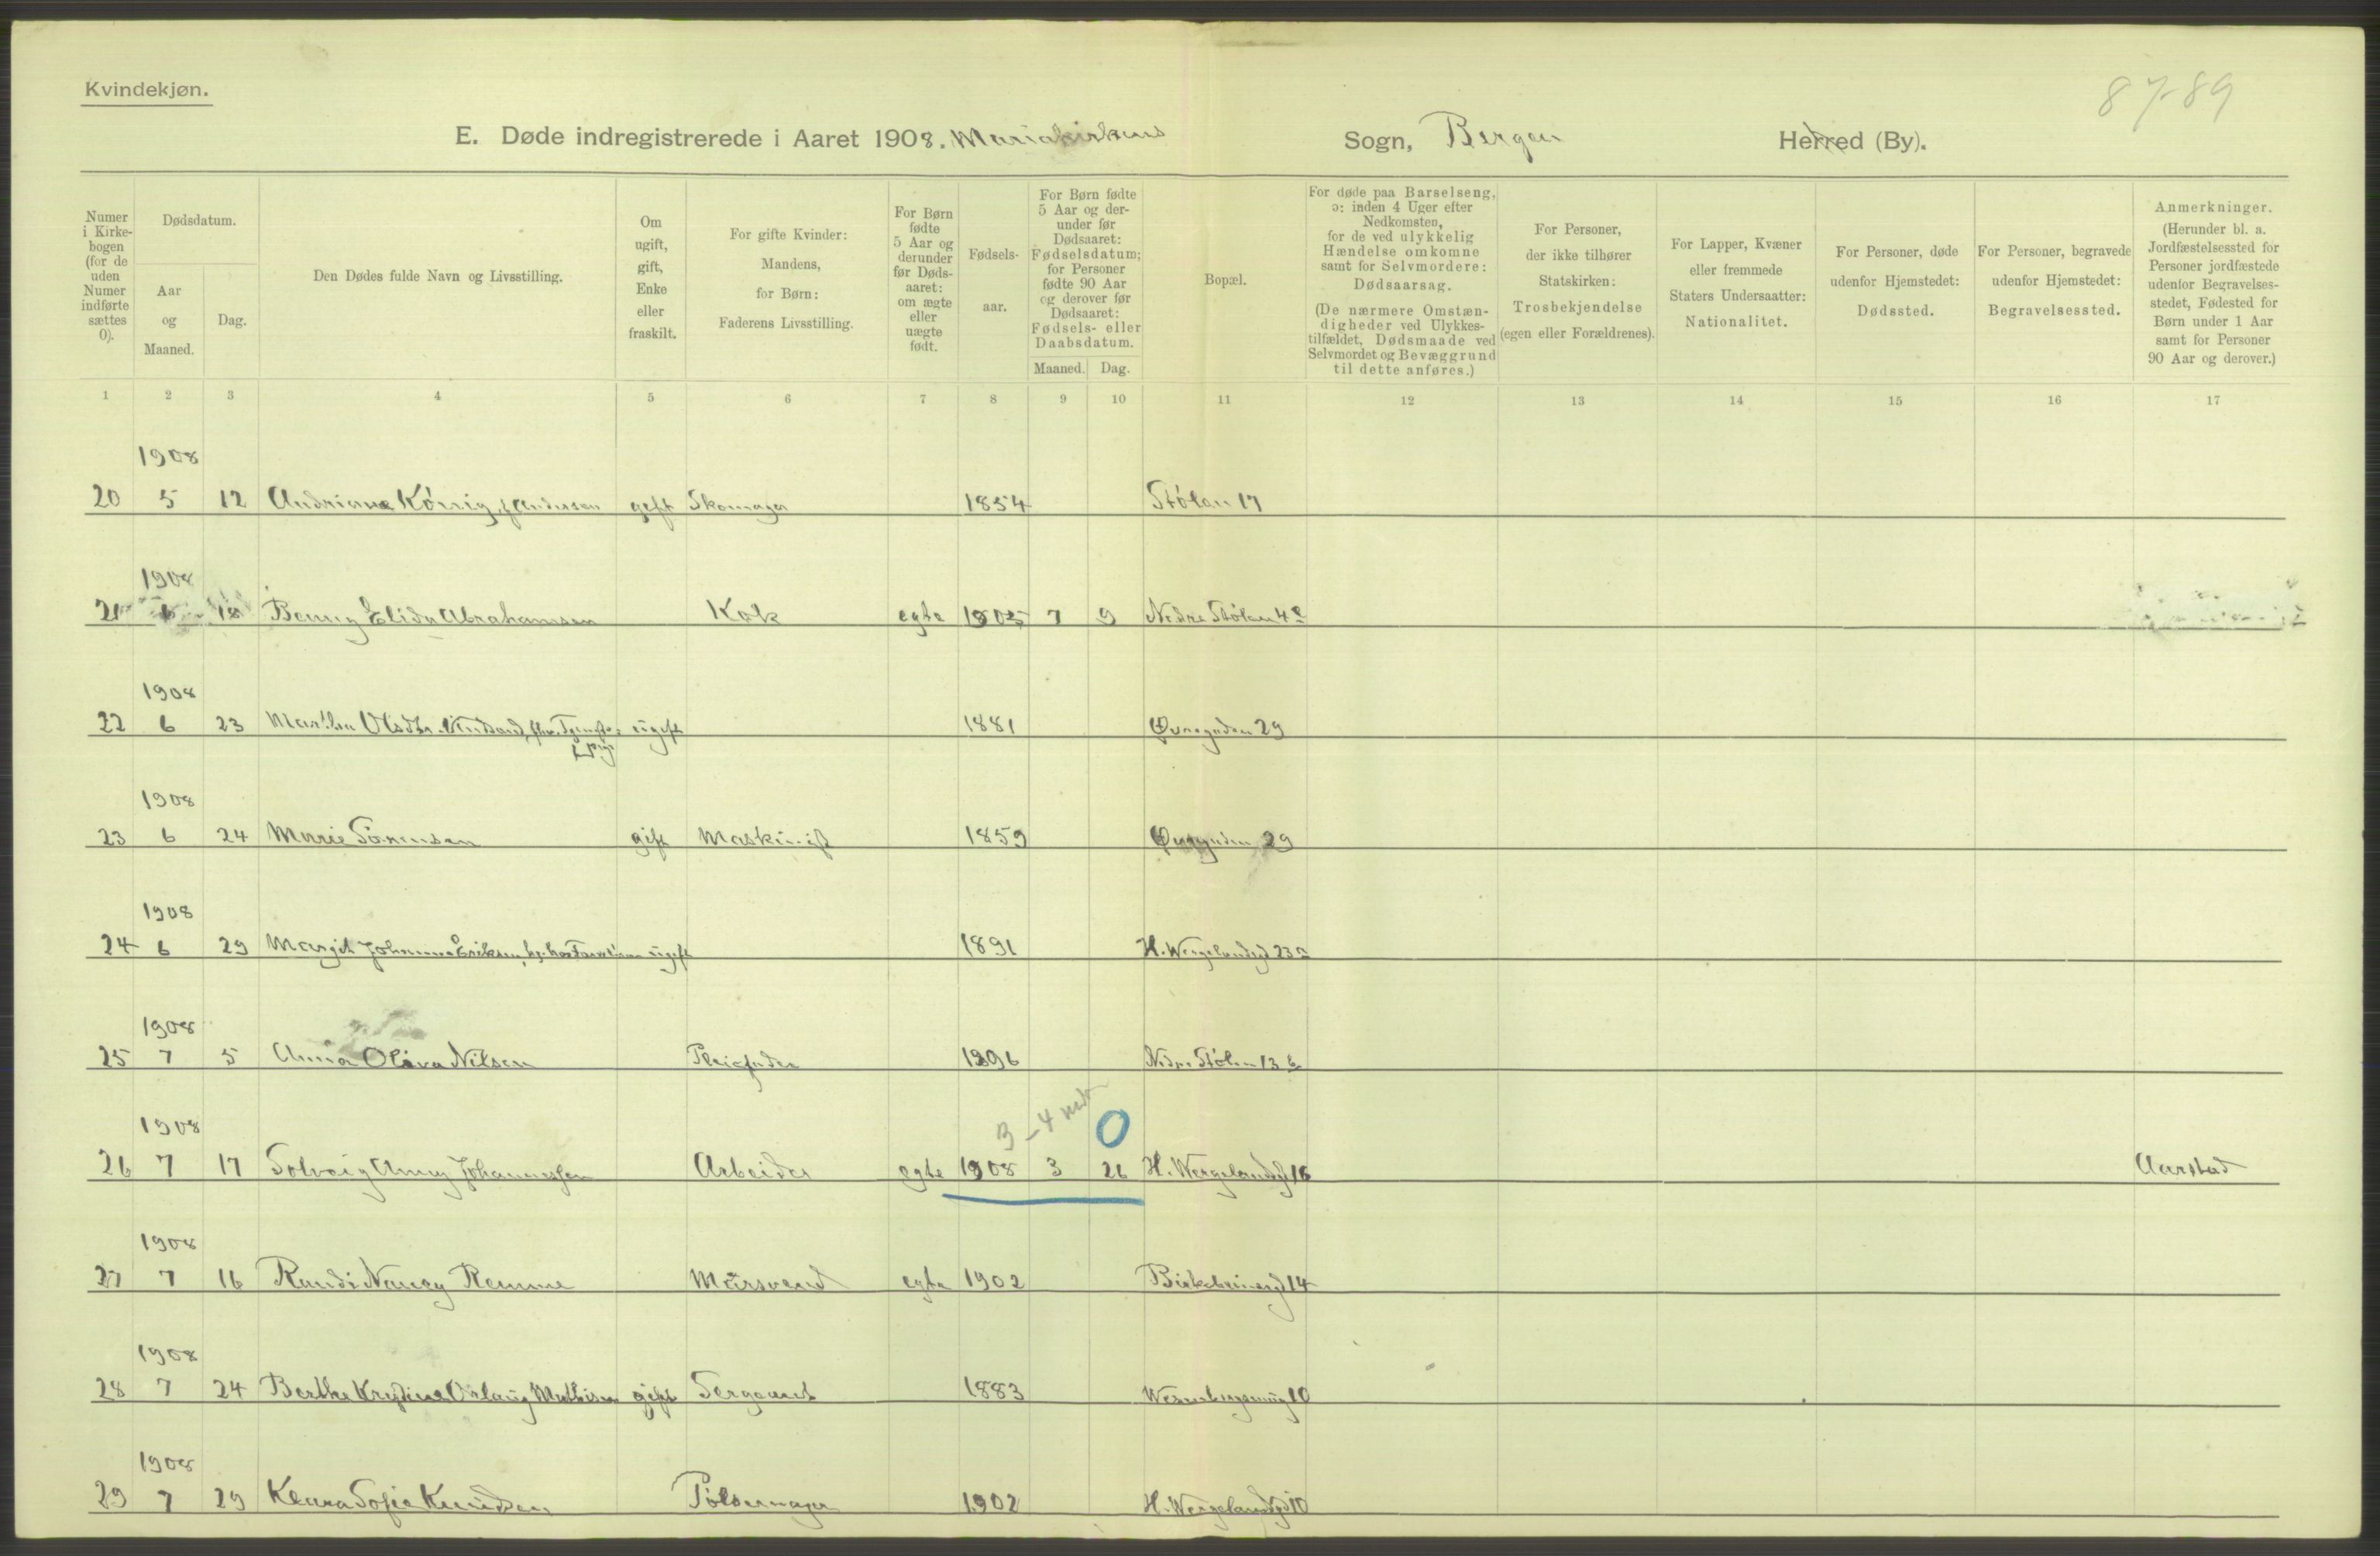 Kvindekjøn.
87-89
E. Døde indregistrerede i Aaret 1908. Mariakirkens Sogn, Bergen Herred (By).
Numer i Kirke-bogen (for de uden Numer indførte sættes 0).
Dødsdatum.
Aar og Maaned.
Dag.
Den Dødes fulde Navn og Livsstilling.
Om ugift, gift, Enke eller fraskilt.
For gifte Kvinder: Mandens, for Børn: Faderens Livsstilling.
For Børn fødte 5 Aar og derunder før Døds-aaret: om ægte eller uægte født.
Fødsels-aar.
For Børn fødte 5 Aar og der-under før Dødsaaret: Fødselsdatum; for Personer fødte 90 Aar og derover før Dødsaaret: Fødsels- eller Daabsdatum.
Maaned. Dag.
Bopæl.
For døde paa Barselseng, ɔ: inden 4 Uger efter Nedkomsten, for de ved ulykkelig Hændelse omkomne samt for Selvmordere: Dødsaarsag.
(De nærmere Omstæn-digheder ved Ulykkes-tilfældet, Dødsmaade ved Selvmordet og Bevæggrund til dette anføres.)
For Personer, der ikke tilhører Statskirken: Trosbekjendelse (egen eller Forældrenes).
For Lapper, Kvæner eller fremmede Staters Undersaatter: Nationalitet.
For Personer, døde udenfor Hjemstedet: Dødssted.
For Personer, begravede udenfor Hjemstedet: Begravelsessted.
Anmerkninger. (Herunder bl. a. Jordfæstelsessted for Personer jordfæstede udenfor Begravelses-stedet, Fødested for Børn under 1 Aar samt for Personer 90 Aar og derover.)
1 2 3 4 5 6 7 8 9 10 11 12 13 14 15 16 17
1908
20 5 12 Andriane König, f. Andersen gift Skomager 1854 Stølen 17
1908
21 6 18 Benny Elida Abrahamsen Kok egte 1905 7 9 Nedre Stølen 4
1908
22 6 23 Martha Olsdtr. ugift 1881 Øvregaden 29
1908
23 6 24 Marie Sörensen gift Maskinist 1859 Øvregaden 29
1908
24 6 29 Margit Johanne Eriksen, ugift 1891 H. Wergelandsgd 23
1908
25 7 5 Anna Oliva Nilsen 1896 Nedre Stølen 13 b
3-4 mdr 0
1908
26 7 17 Solveig Anny Johannessen Arbeider egte 1908 3 26 H. Wergelandsgd 16 Aarstad
1908
27 7 16 Randi Nancy Remme Mürsvend egte 1902 Birkebeinergd 14
1908
28 7 24 Berthe Kristine Oslaug Mathisen gift Sergeant 1883 10
1908
29 7 29 Klara Sofie Knudsen Pölsemager 1902 H. Wergelandsgd 10